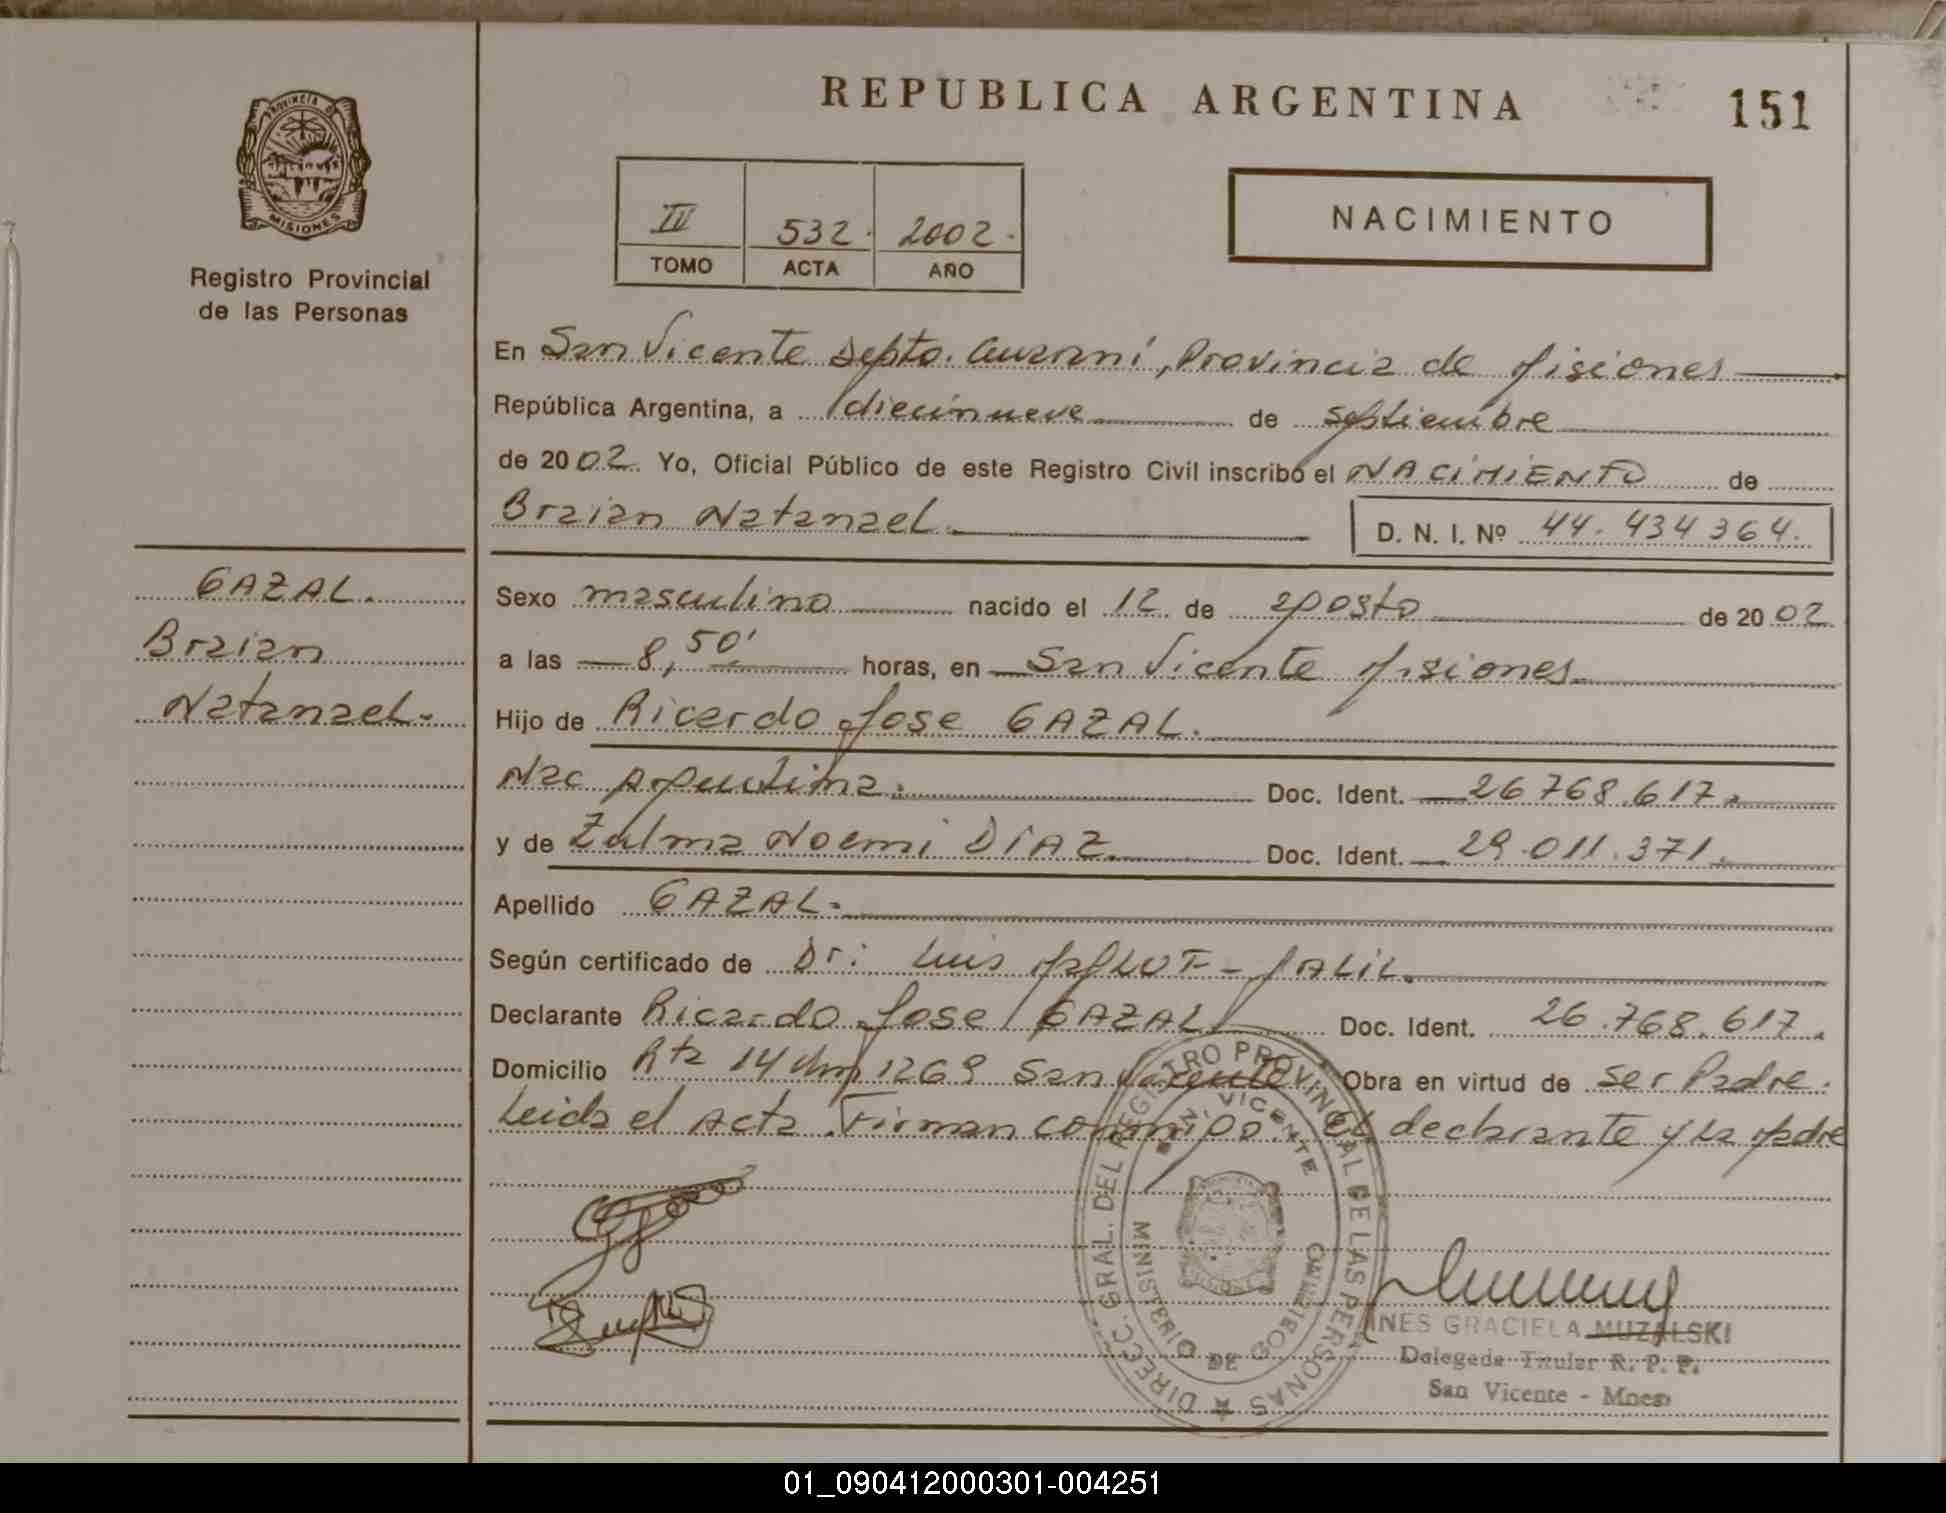 REPUBLICA ARGENTINA
151
PROVINCIA DE
MISIONES
Registro Provincial
de las Personas
532. 2002.
TOMO ACTA AÑO
NACIMIENTO
En San Vicente Depto. Guaraní, Provincia de Misiones
República Argentina, a diecinueve de septiembre
de 2002. Yo, Oficial Público de este Registro Civil inscribo el NACIMIENTO de
Braian Natanael.
D. N. I. Nº 44.434 364.
GAZAL.
Braian
Natanael.
Sexo masculino nacido el 12 de agosto de 2002
a las 8,50' horas, en San Vicente Misiones
Hijo de Ricardo Jose GAZAL.
Nac Argentina. Doc. Ident. 26 768.617.
y de Zulma Noemi DIAZ Doc. Ident. 29.011.371.
Apellido GAZAL.
Según certificado de Dr: Luis
Declarante Ricardo Jose GAZAL Doc. Ident. 26.768.617.
Domicilio Rta 14 Km 1269 San Vicente Obra en virtud de ser Padre.
Leida el Acta Firman conmigo el declarante y la Madre
DIREC. GRAL. DEL REGISTRO PROVINCIAL DE LAS PERSONAS
VICENTE
MINISTERIO DE GOBIERNO
INES GRACIELA MUZALSKI
Delegada Titular R. P. P.
San Vicente - Mnes
01_090412000301-004251